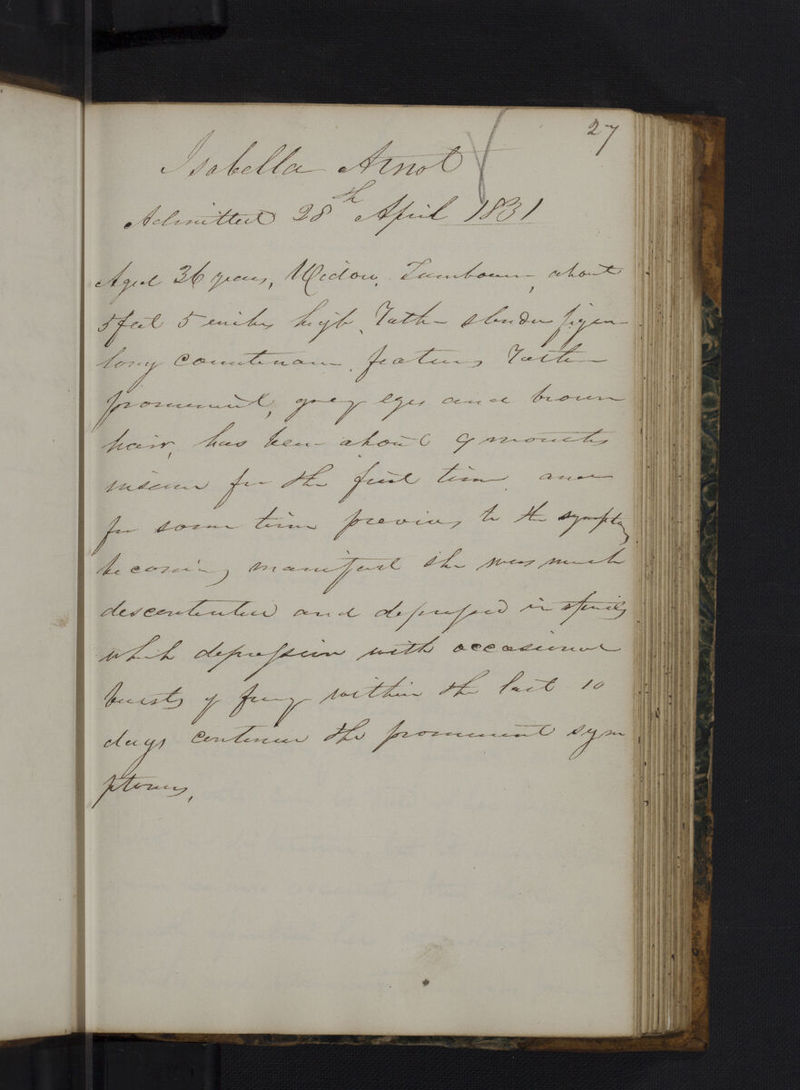 27
Isabella Arnot
Admitted 28th April 1831
Aged 36 years, Widow, about
5 feet 5 inches high, rather slender figure
long countenance, features rather
prominent, grey eyes and brown
hair, has been about 9 months
insane for the first time and
for some time previous to the symptoms
becoming manifest she was much
discontented and depressed in spirits
which depression with occasional
bursts of fury within the last 10
days continue the prominent sym
ptoms,